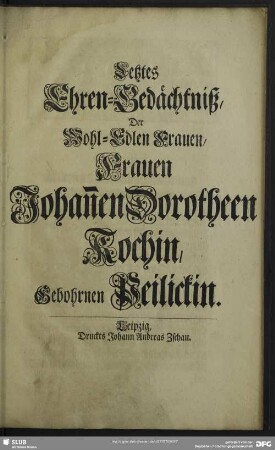 Letztes
Ehren-Gedächtniß/
Der
Wohl-Edlen Frauen/
Frauen
Johañen Dorotheen
Kochin/
Gebohrnen Peilickin.
Leipzig,
Druckts Johann Andreas Zschau.
SLUB
DFG